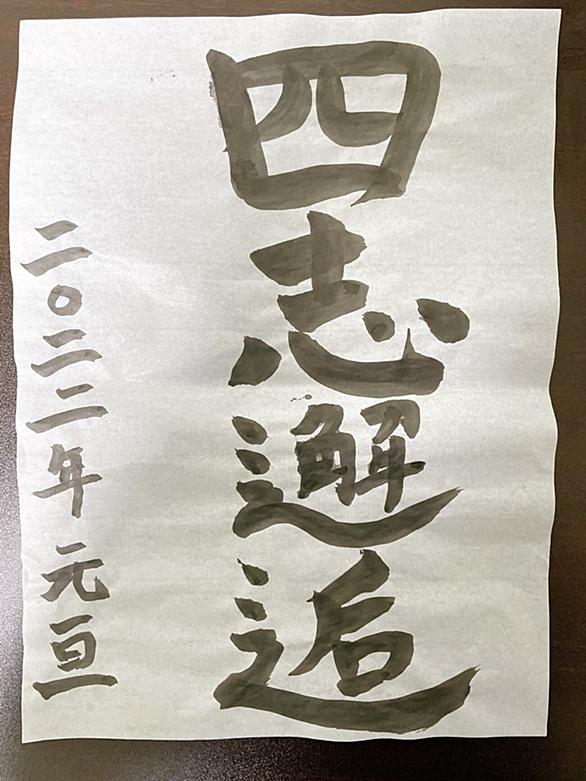 四志邂逅
二〇二二年元旦